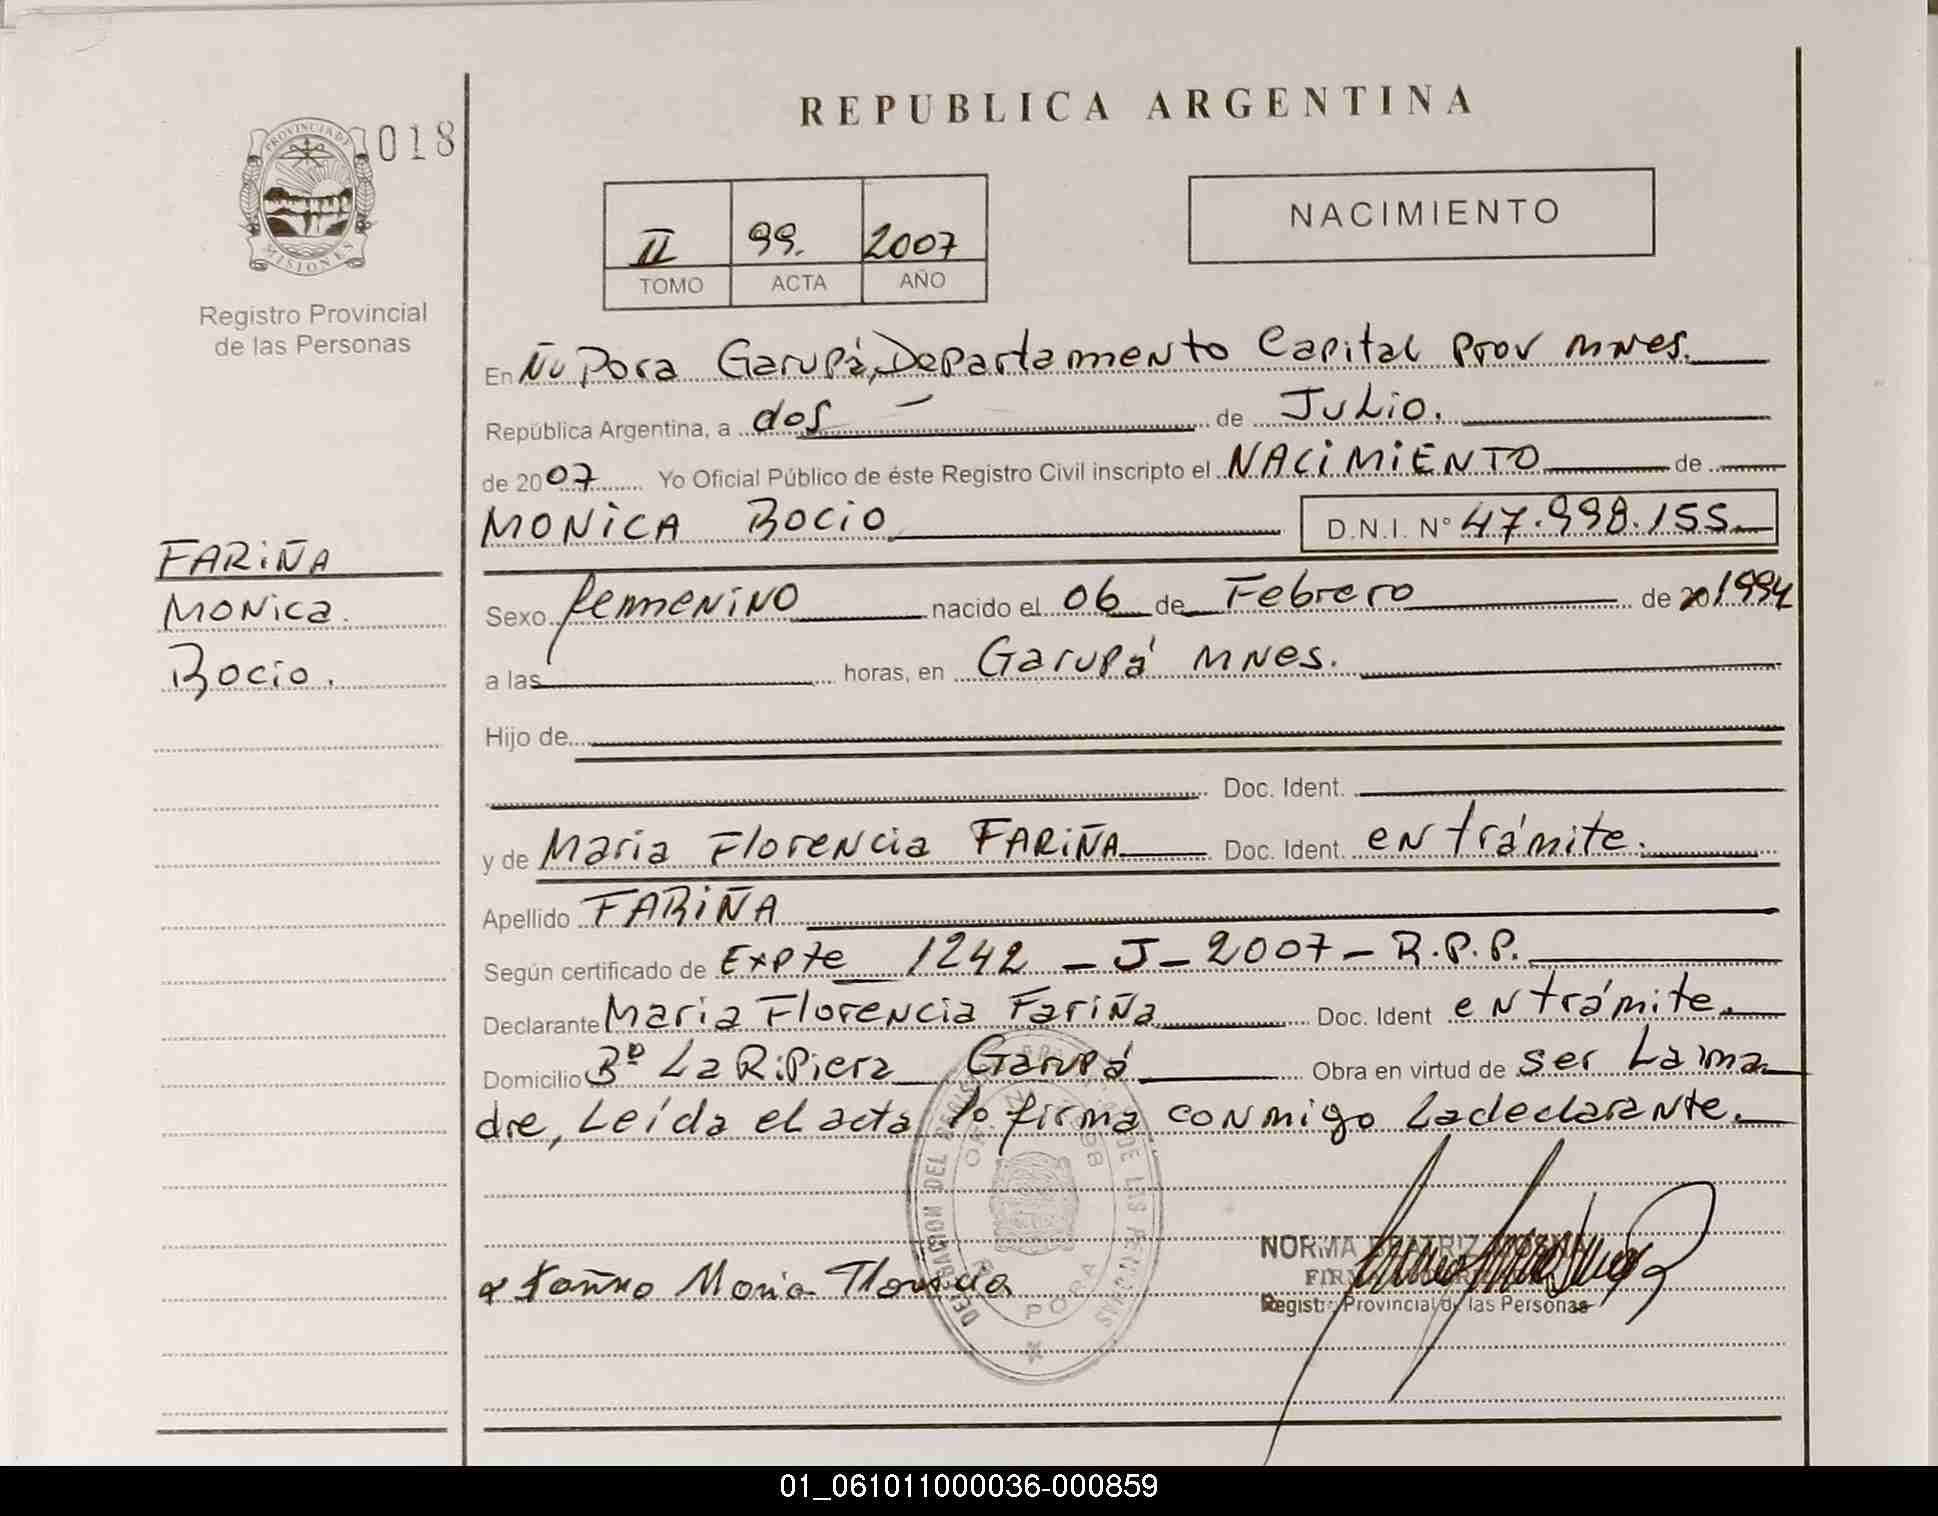 REPUBLICA ARGENTINA
018
PROVINCIA DE
MISIONES
Registro Provincial
de las Personas
II 99. 2007
TOMO ACTA AÑO
NACIMIENTO
En Ñu Pora Garupá, Departamento Capital Prov mnes.
República Argentina, a dos de Julio.
de 2007 Yo Oficial Público de éste Registro Civil inscripto el NACIMIENTO de
MONICA ROCIO D.N.I. N° 47.998.155
FARIÑA
MONica.
Rocio.
Sexo femenino nacido el 06 de Febrero de 20 1994
a las horas, en Garupá mnes.
Hijo de
Doc. Ident.
y de Maria Florencia FARIÑA Doc. Ident. en trámite.
Apellido FARIÑA
Según certificado de Expte 1242 - J - 2007 - R.P.P.
Declarante Maria Florencia Fariña Doc. Ident en trámite.
Domicilio Bº La Ripiera Garupá Obra en virtud de ser La ma
dre, Leída el acta lo firma conmigo La declarante.
DELEGACION DEL DE LAS PERSONAS
PORA
NORMA BEATRIZ
Registro Provincial de las Personas
Maria
01_061011000036-000859